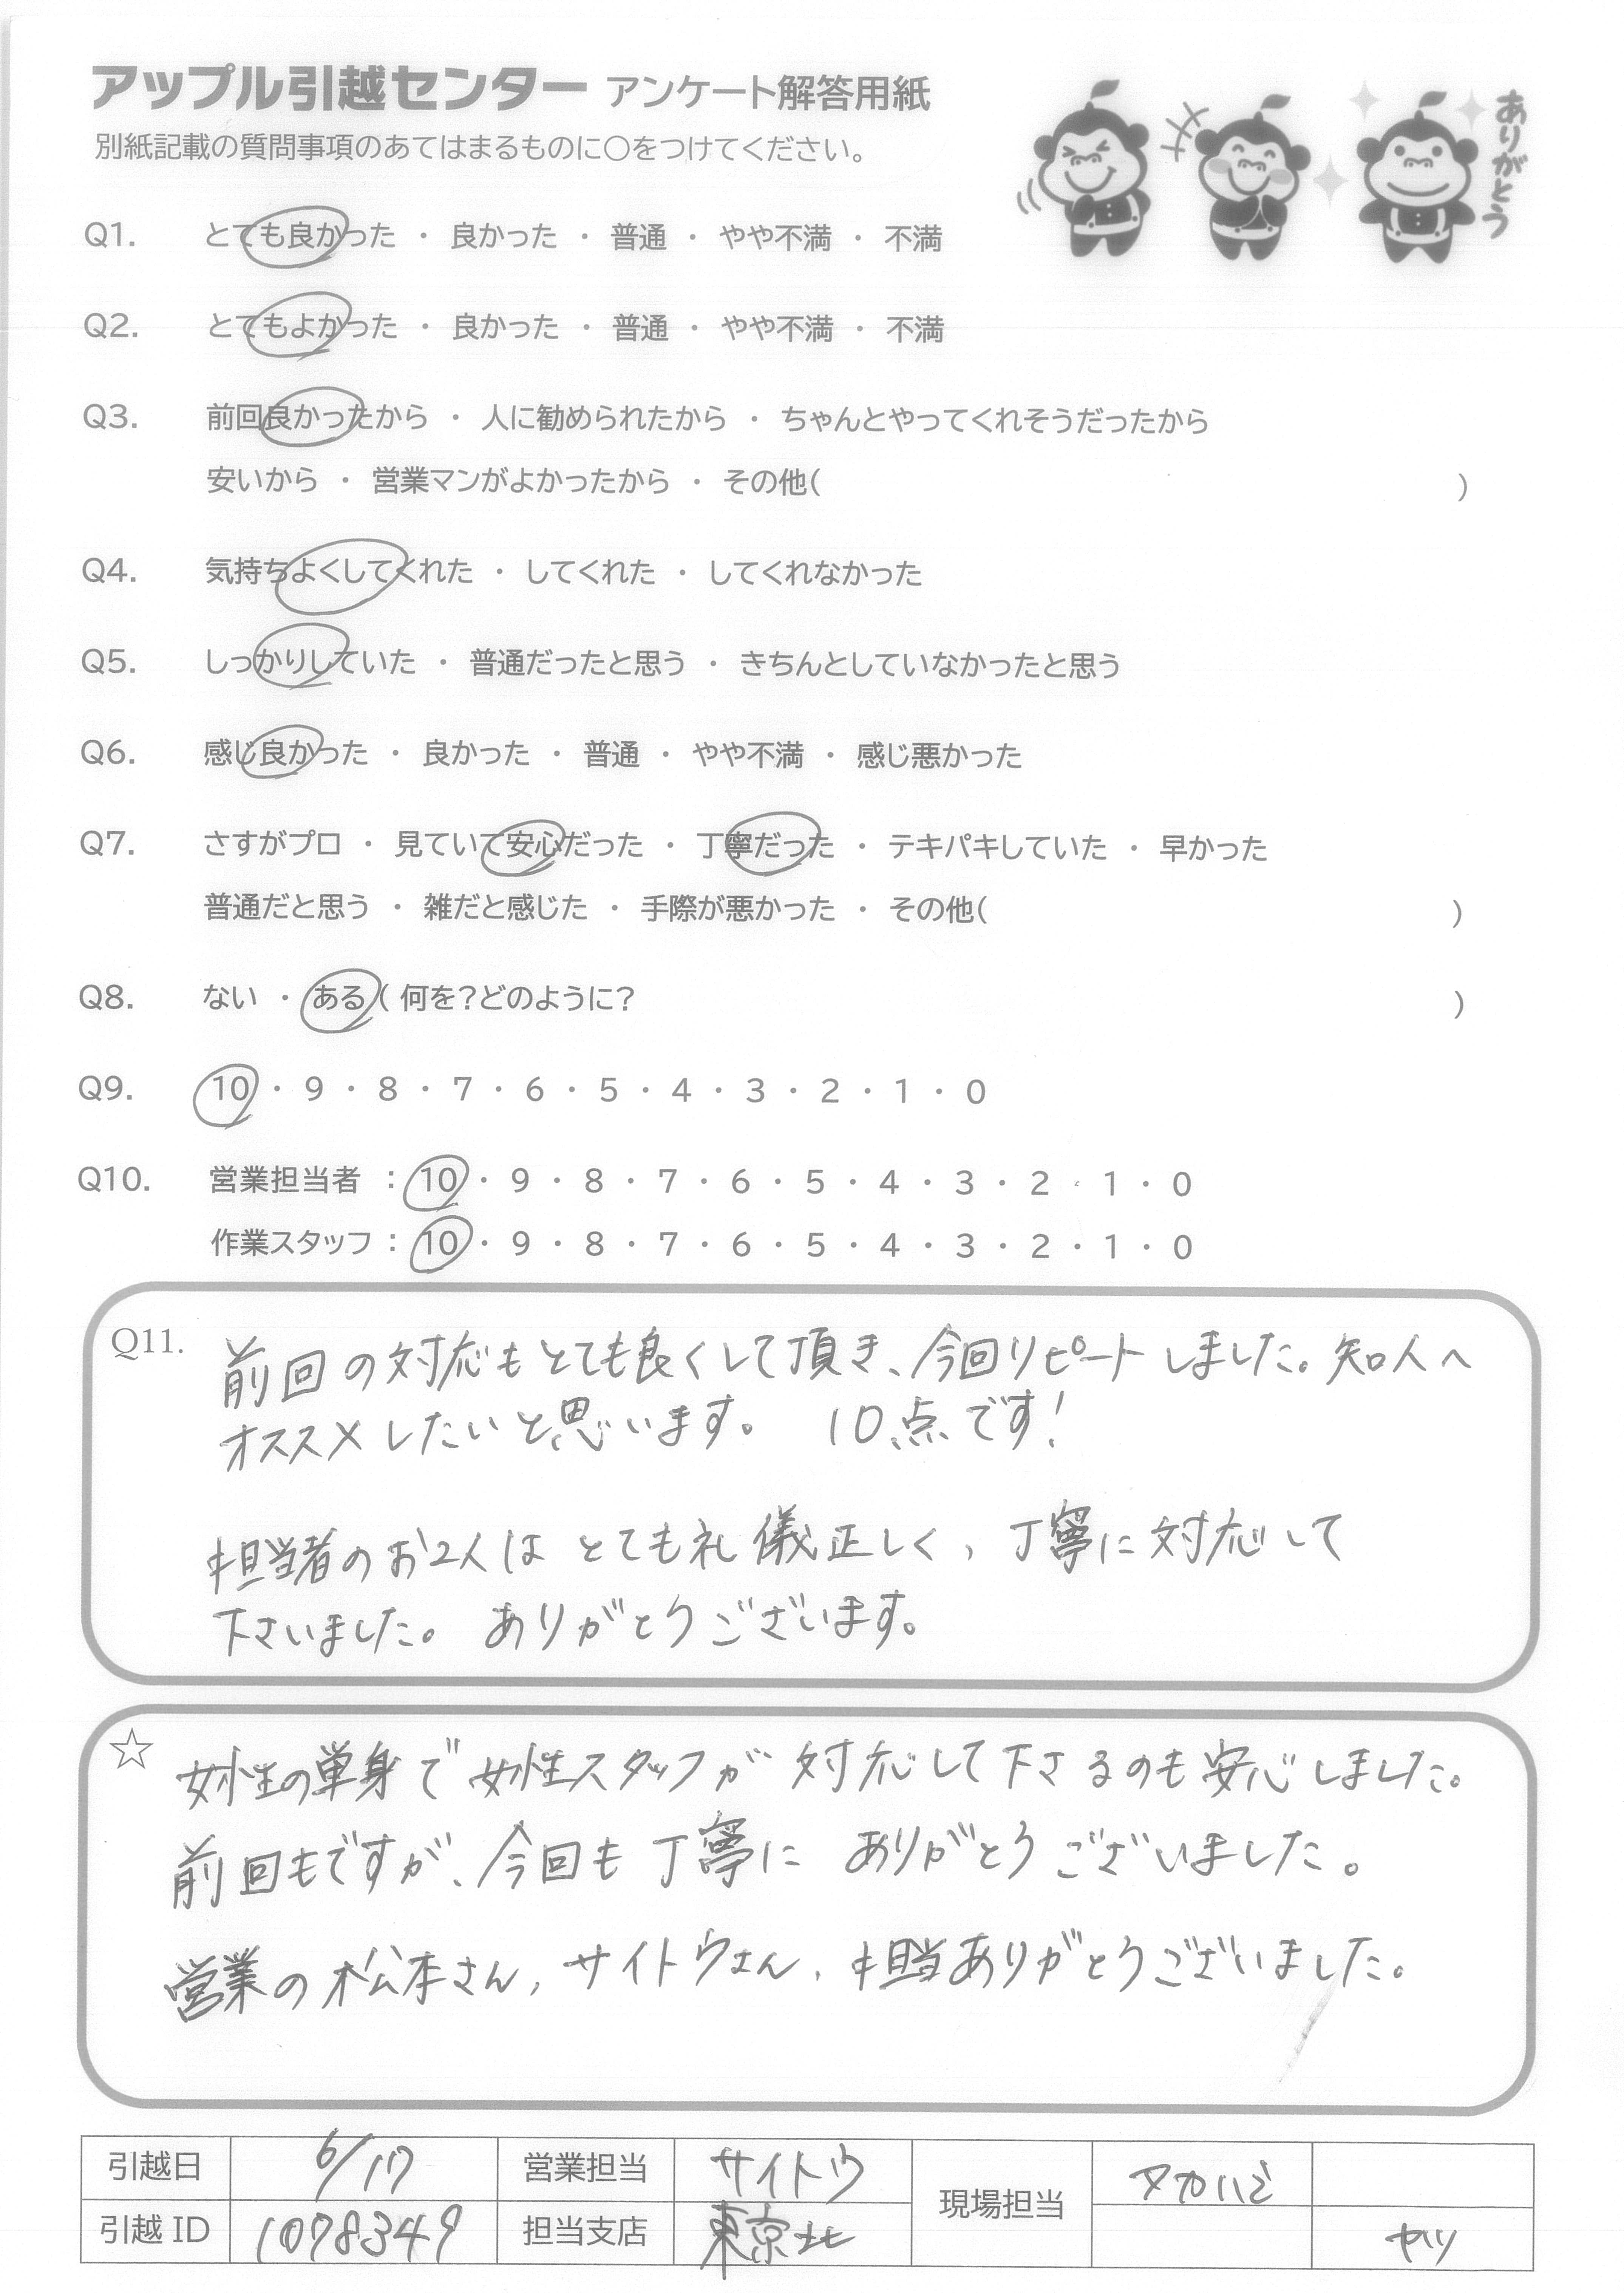 アップル引越センター アンケート解答用紙
別紙記載の質問事項のあてはまるものに○をつけてください。
ありがとう
Q1. とても良かった ・ 良かった ・ 普通 ・ やや不満 ・ 不満
Q2. とてもよかった ・ 良かった ・ 普通 ・ やや不満 ・ 不満
Q3. 前回良かったから ・ 人に勧められたから ・ ちゃんとやってくれそうだったから
安いから ・ 営業マンがよかったから ・ その他( )
Q4. 気持ちよくしてくれた ・ してくれた ・ してくれなかった
Q5. しっかりしていた ・ 普通だったと思う ・ きちんとしていなかったと思う
Q6. 感じ良かった ・ 良かった ・ 普通 ・ やや不満 ・ 感じ悪かった
Q7. さすがプロ ・ 見ていて安心だった ・ 丁寧だった ・ テキパキしていた ・ 早かった
普通だと思う ・ 雑だと感じた ・ 手際が悪かった ・ その他( )
Q8. ない ・ ある ( 何を?どのように? )
Q9. 10 ・ 9 ・ 8 ・ 7 ・ 6 ・ 5 ・ 4 ・ 3 ・ 2 ・ 1 ・ 0
Q10. 営業担当者 : 10 ・ 9 ・ 8 ・ 7 ・ 6 ・ 5 ・ 4 ・ 3 ・ 2 ・ 1 ・ 0
作業スタッフ : 10 ・ 9 ・ 8 ・ 7 ・ 6 ・ 5 ・ 4 ・ 3 ・ 2 ・ 1 ・ 0
Q11. 前回の対応もとても良くして頂き、今回リピートしました。知人へ
オススメしたいと思います。 10点です!
担当者のお2人はとても礼儀正しく、丁寧に対応して
下さいました。ありがとうございます。
☆ 女性の単身で女性スタッフが対応して下さるのも安心しました。
前回もですが、今回も丁寧にありがとうございました。
営業の松本さん、サイトウさん、担当ありがとうございました。
引越日 6/17 営業担当 サイトウ 現場担当
引越ID 1078349 担当支店 東京北 ヤツ